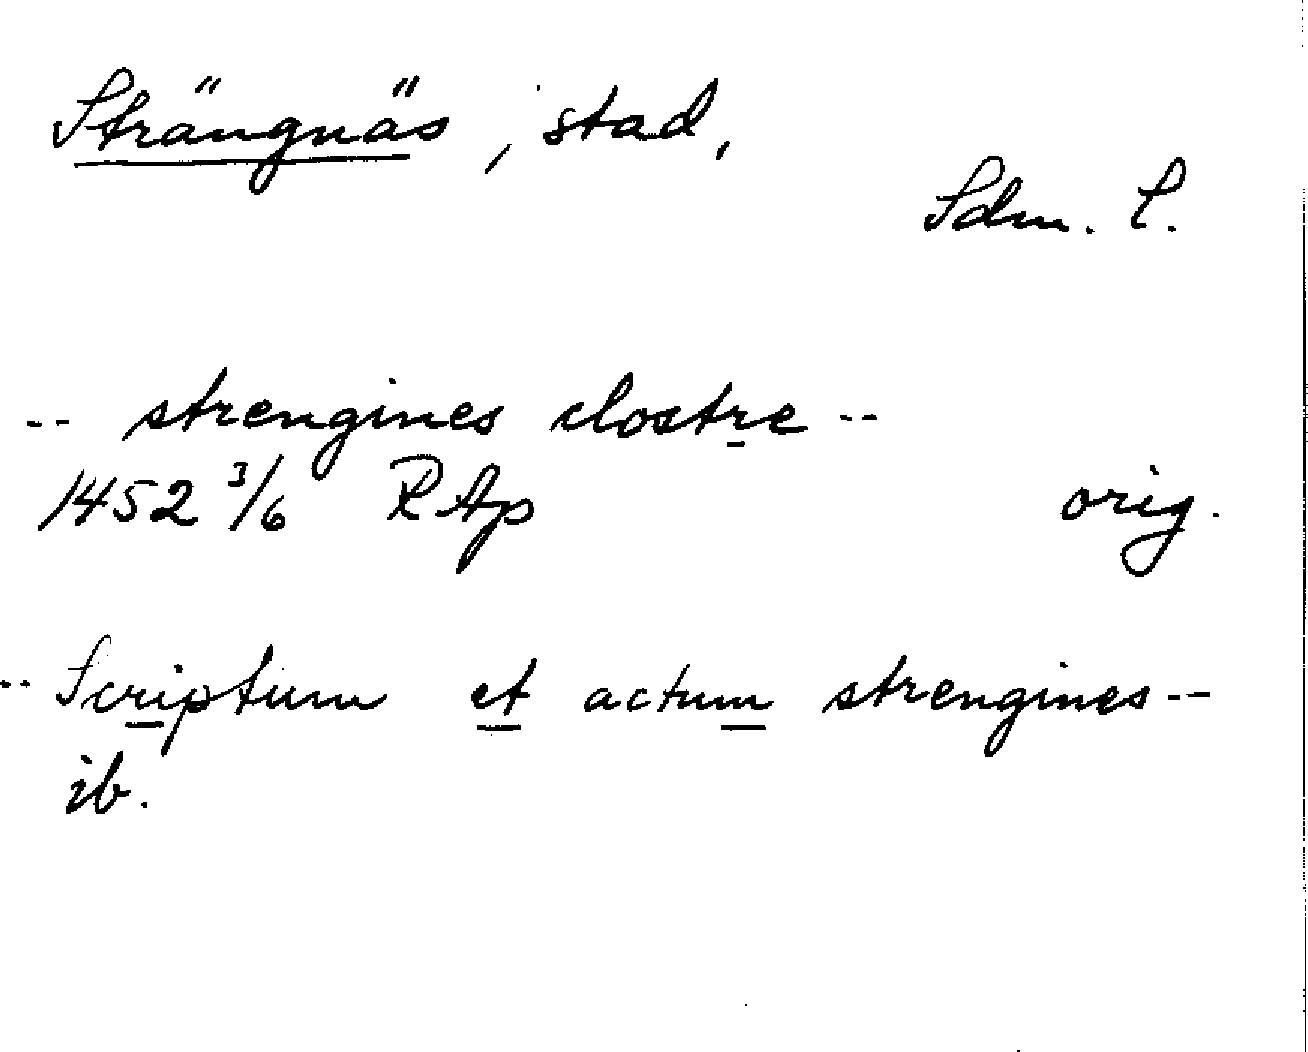 Strängnäs, stad,
Sdm. l.
-- strengines clostre --
1452 3/6 RAp orig.
-- Scriptum et actum strengines --
ib.